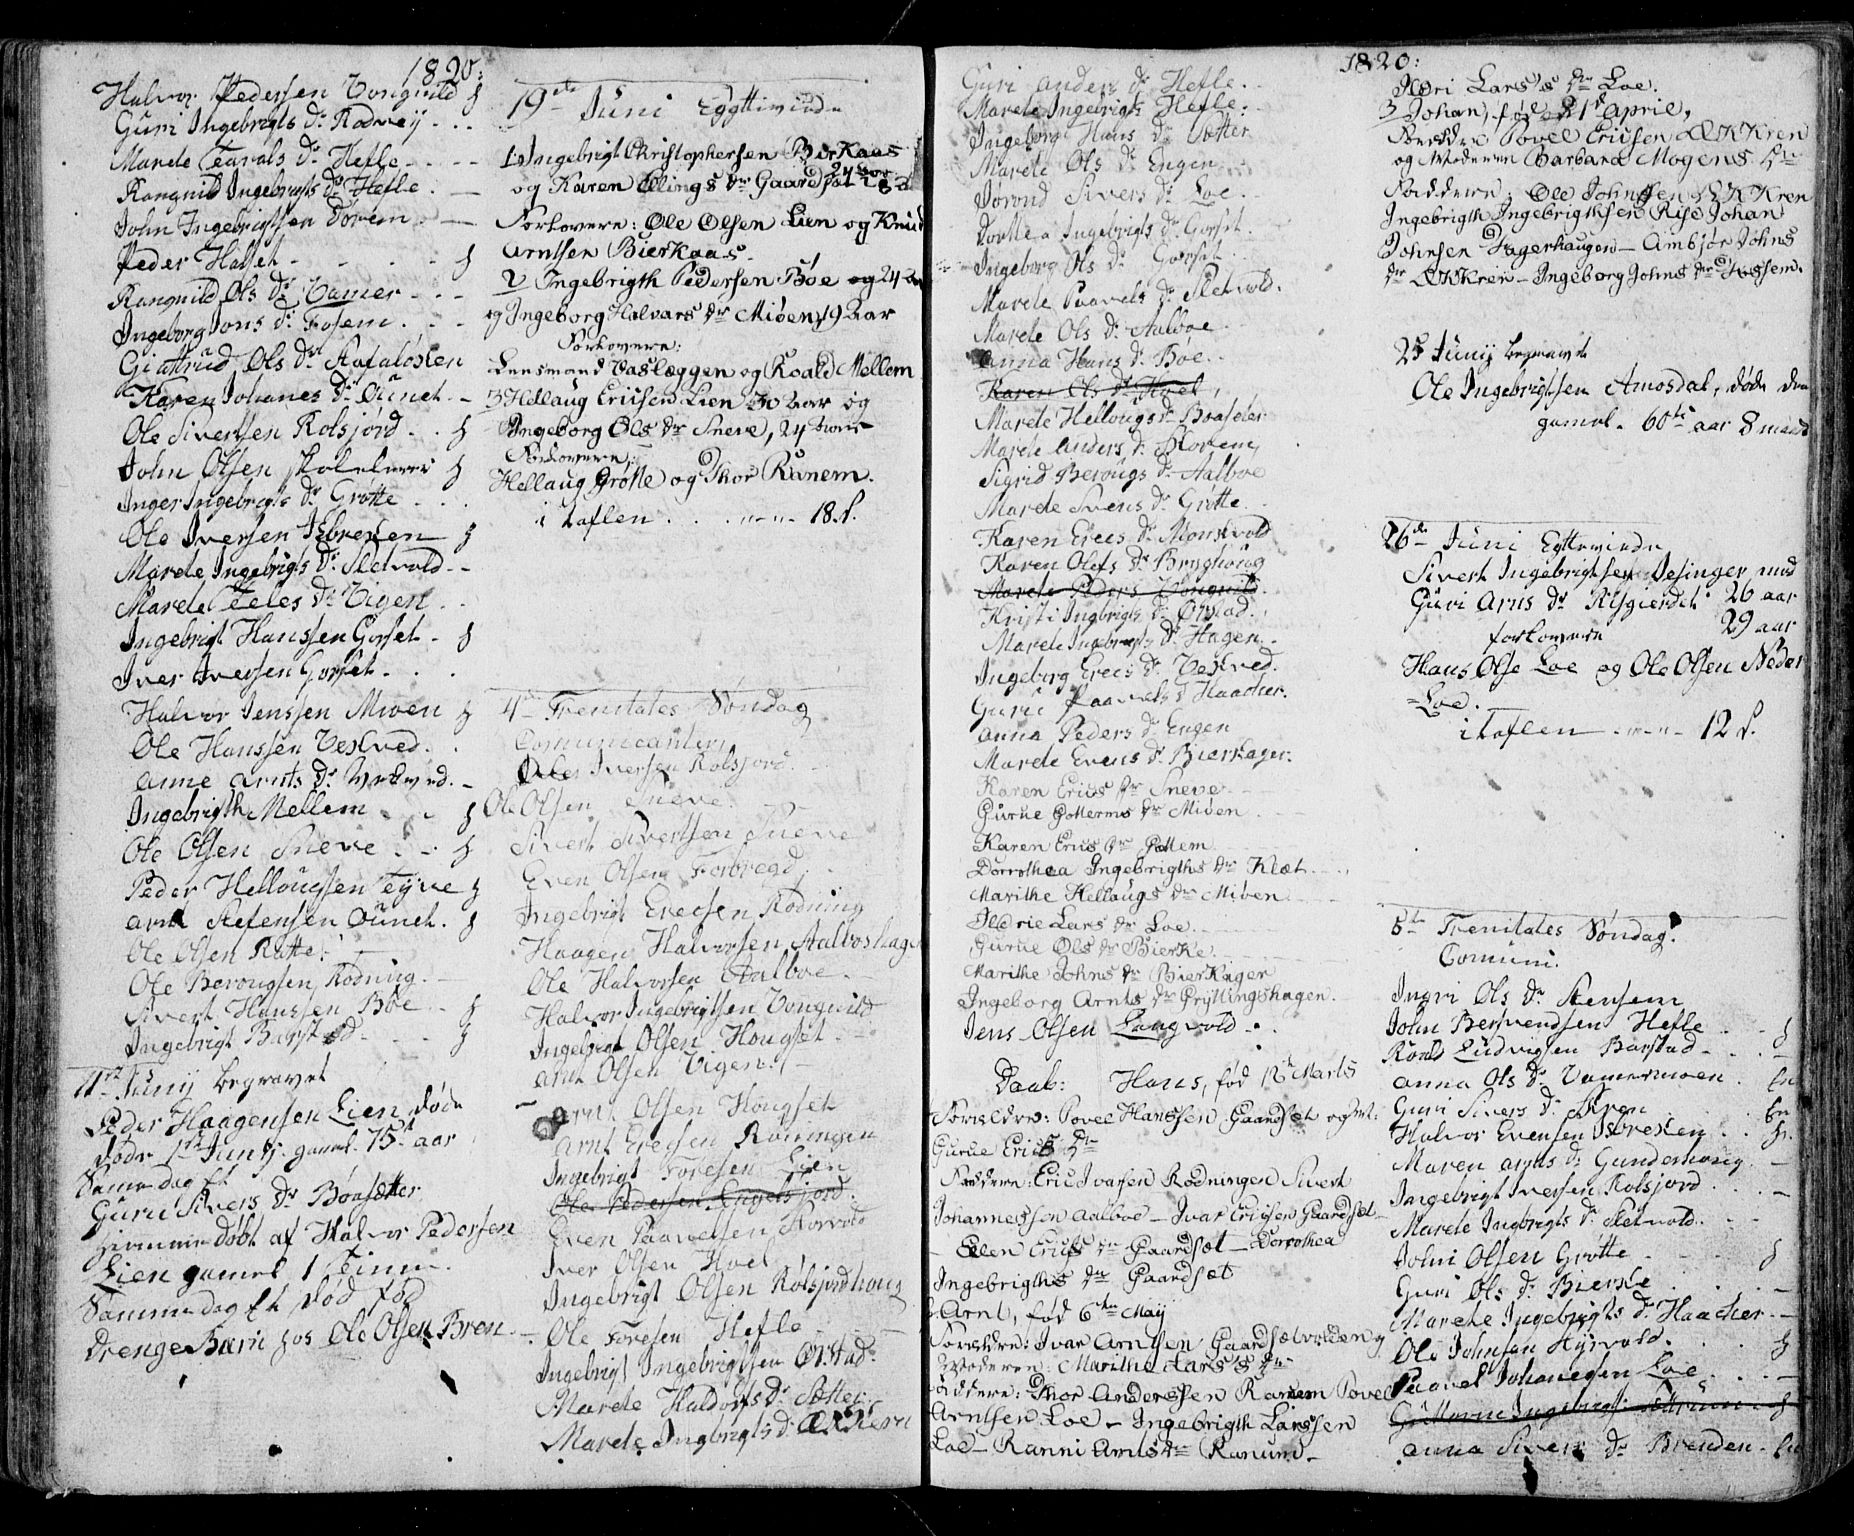 1820:
Halvor Pedersen Vonguild
Guri Ingebrigts Dr Rodvej
Marete Taarals Dr Hefle
Rangnild Ingebrigts Dr Hefle
John Ingebrigtsen Dørem
Peder Hafset
Rangnild Ols Dr Vamer
Ingeborg Jons Dr Fosem
Giøttrud Ols Dr Aafaløkken
Karen Johanes Dr Øunet
Ole Sivertsen Rolsjord
John Olsen skolelærer
Inger Ingebrigts Dr Grøtte
Ole Iversen Isbreken
Marete Ingebrigts Dr Sletvold
Marete Eeles Dr Vigen
Ingebrigt Hanssen Gorset
Iver Iversen Gorset
Halvor Jenssen Mioen
Ole Hanssen Vekved
Anne Arnts Dr Vekved
Ingebrigth Mellem
Ole Olsen Sneve
Peder Hellougsen Teyve
Arnt Stefensen Øunet
Ole Olsen Ratte
Ole Berougsen Rodning
Sivert Hanssen Boe
Ingebrigt Barstad
11te Junij begravet
Peder Haagensen Lien, døde
døde 1ste Junij gamel 75 aar
Same dag Et
Guru Sivers Dr Bøasetter
hiemmedøbt af Halvor Pedersen
Lien gamel 1 time
Samme dag Et død fød
Drenge Barn hos Ole Olsen Bren
19de Juni Egteviede
1. Ingebrigt Christophersen Birkaas 24 aar
og Karen Ellings dr Gaardsæt
Forlovere: Ole Olsen Lien og Knud
Arntsen Bierkaas
2 Ingebrigth Pedersen Bøe og 24 aar
og Ingeborg Halvars dr Miøen 19 aar
Forlovere:
Lensmand Vaslæggen og Roald Mellem
3 Hellaug Ericsen Lien 30 aar og
Ingeborg Ols dr Sneve, 24
Forlovere:
Hellaug Grøtte og Thor Ranem.
i taflen . . . 18 s.
4de Trenitates Søndag
Comunicantere
Iversen Rolsjord
Ole Olsen Sneve
Sivert Sivertsen Sneve
Even Olsen Forbregd
Ingebrigt Erecsen Rodning
Haagen Halvorsen Aalboshagen
Ole Halvorsen Aalboe
Halvor Ingebrigtsen Vonguild
Ingebrigt Olsen Hougset
Arnt Olsen Vigen
Arnt Olsen Hougset
Arnt Erecsen Rønningen
Ingebrigt Foresen Lien
Ole Pedersen Engelsjord
Even Paavelsen Storvold
Iver Olsen Hoel
Ingebrigt Olsen Rolsjordhoug
Ole Foresen Hefle
Ingebrigt Ingebrigtsen Ørstad
Marete Haldors Dr Sætter
Marete Ingbrigts Dr
1820:
Guri Anders Dr Hefle
Marete Ingebrigts Hefle
Ingeborg Hans Dr Sætter
Marete Ols Dr Engen
Jørond Sivers Dr Loe
Dorttea Ingebrigts Dr Gorset
Ingeborg Ols Dr Gorset
Marete Paavels Dr Sletvold
Marete Ols Dr Aalboe
Anna Hans Dr Bøe
Karen Ols Dr Hoel
Marete Hellougs Dr Boaseter
Marete Anders Dr Storem
Sigrid Berougs Dr Aalboe
Marete Svens Dr Grøtte
Karen Erecs Dr Monsvold
Karen Olefs Dr Brughoug
Marete Peders Vonguild
Kristi Ingbrigts Dr Ørstad
Marete Ingebrigts Dr Hagen
Ingeborg Erecs Dr Vekved
Guru Paavels Dr Haacher
Anna Peders Dr Engen
Marete Evens Dr Bierkager
Karen Erics dr Sneve
Gurue Gotterms dr Miøen
Karen Erics dr Gottem
Dorrothea Ingebrigths dr Klæt
Marithe Hellaugs dr Miøen
Lars dr Loe
Gurue Ols dr Bierke
Marithe Johns dr Bierkager
Ingeborg Arnts dr Gryttingshagen
Jens Olsen Langvold
Daab: Hans, fød 12te Marts
Forældre: Povel Hanssen Gaardsæt og
Gurue Erics dr
Faddere: Eric Ivarsen Rodningen Sivert
Johannessen Aalboe – Ivar Ericsen Gaardsæt –
Elen Erics dr Gaardsæt – Dorrothea
Ingebrigths dr Gaardsæt
2 Arnt, fød 6te May
Forældre: Ivar Arntsen Gaardsætvolden og
Moderen: Marithe Lars's dr
Faddere: Thor Andersen Ranem Povel
Arntsen Loe – Ingebrigth Larssen
Loe – Ranni Arnts dr Ranum.
Lars's dr Loe.
3 Johan, fød 21de April,
Forældre Povel Ericsen Løkkren
og Moderen Barbara Mogens dr
Faddere: Ole Johnsen Løkkren
Ingebrigth Ingebrigthsen Rise Johan
Johnsen Fagerhaugen – Ambjør Johns
dr Løkkren – Ingeborg Johns dr Fossem.
25 Junij begravet
Ole Ingebrigtsen Amosdal, døde den
gamel. 60 aar 8 maand
26de Juni Egteviede
Sivert Ingebrigtsen Vesinger med
Guri Arns Dr Risgierdet 26 aar
forlovere 29 aar
Hans Olse Loe og Ole Olsen Neder
=Loe.
i taflen . . . 12 s.
5te Trenitates Søndag.
Comuni.
Ingri Ols Dr Stensem
John Bersvendsen Hefle
Roald Ludvigsen Barstad
Anna Ols Dr Vamermoen
Guri Sivers Dr
Halvor Evensen Isbreken
Maren Arnts Dr Gunderhoug
Ingebrigt Iversen Rolsjord
Marete Ingbrigts Dr Sletvold
John Olsen Grøtte
Guri Ols Dr Bierke
Marete Ingebrigts Dr Haacher
Ole Johnsen Hyrvold
Paavel Johanesen Loe
Guttorm Ingebrigt
Anna Sivers Dr Brenden